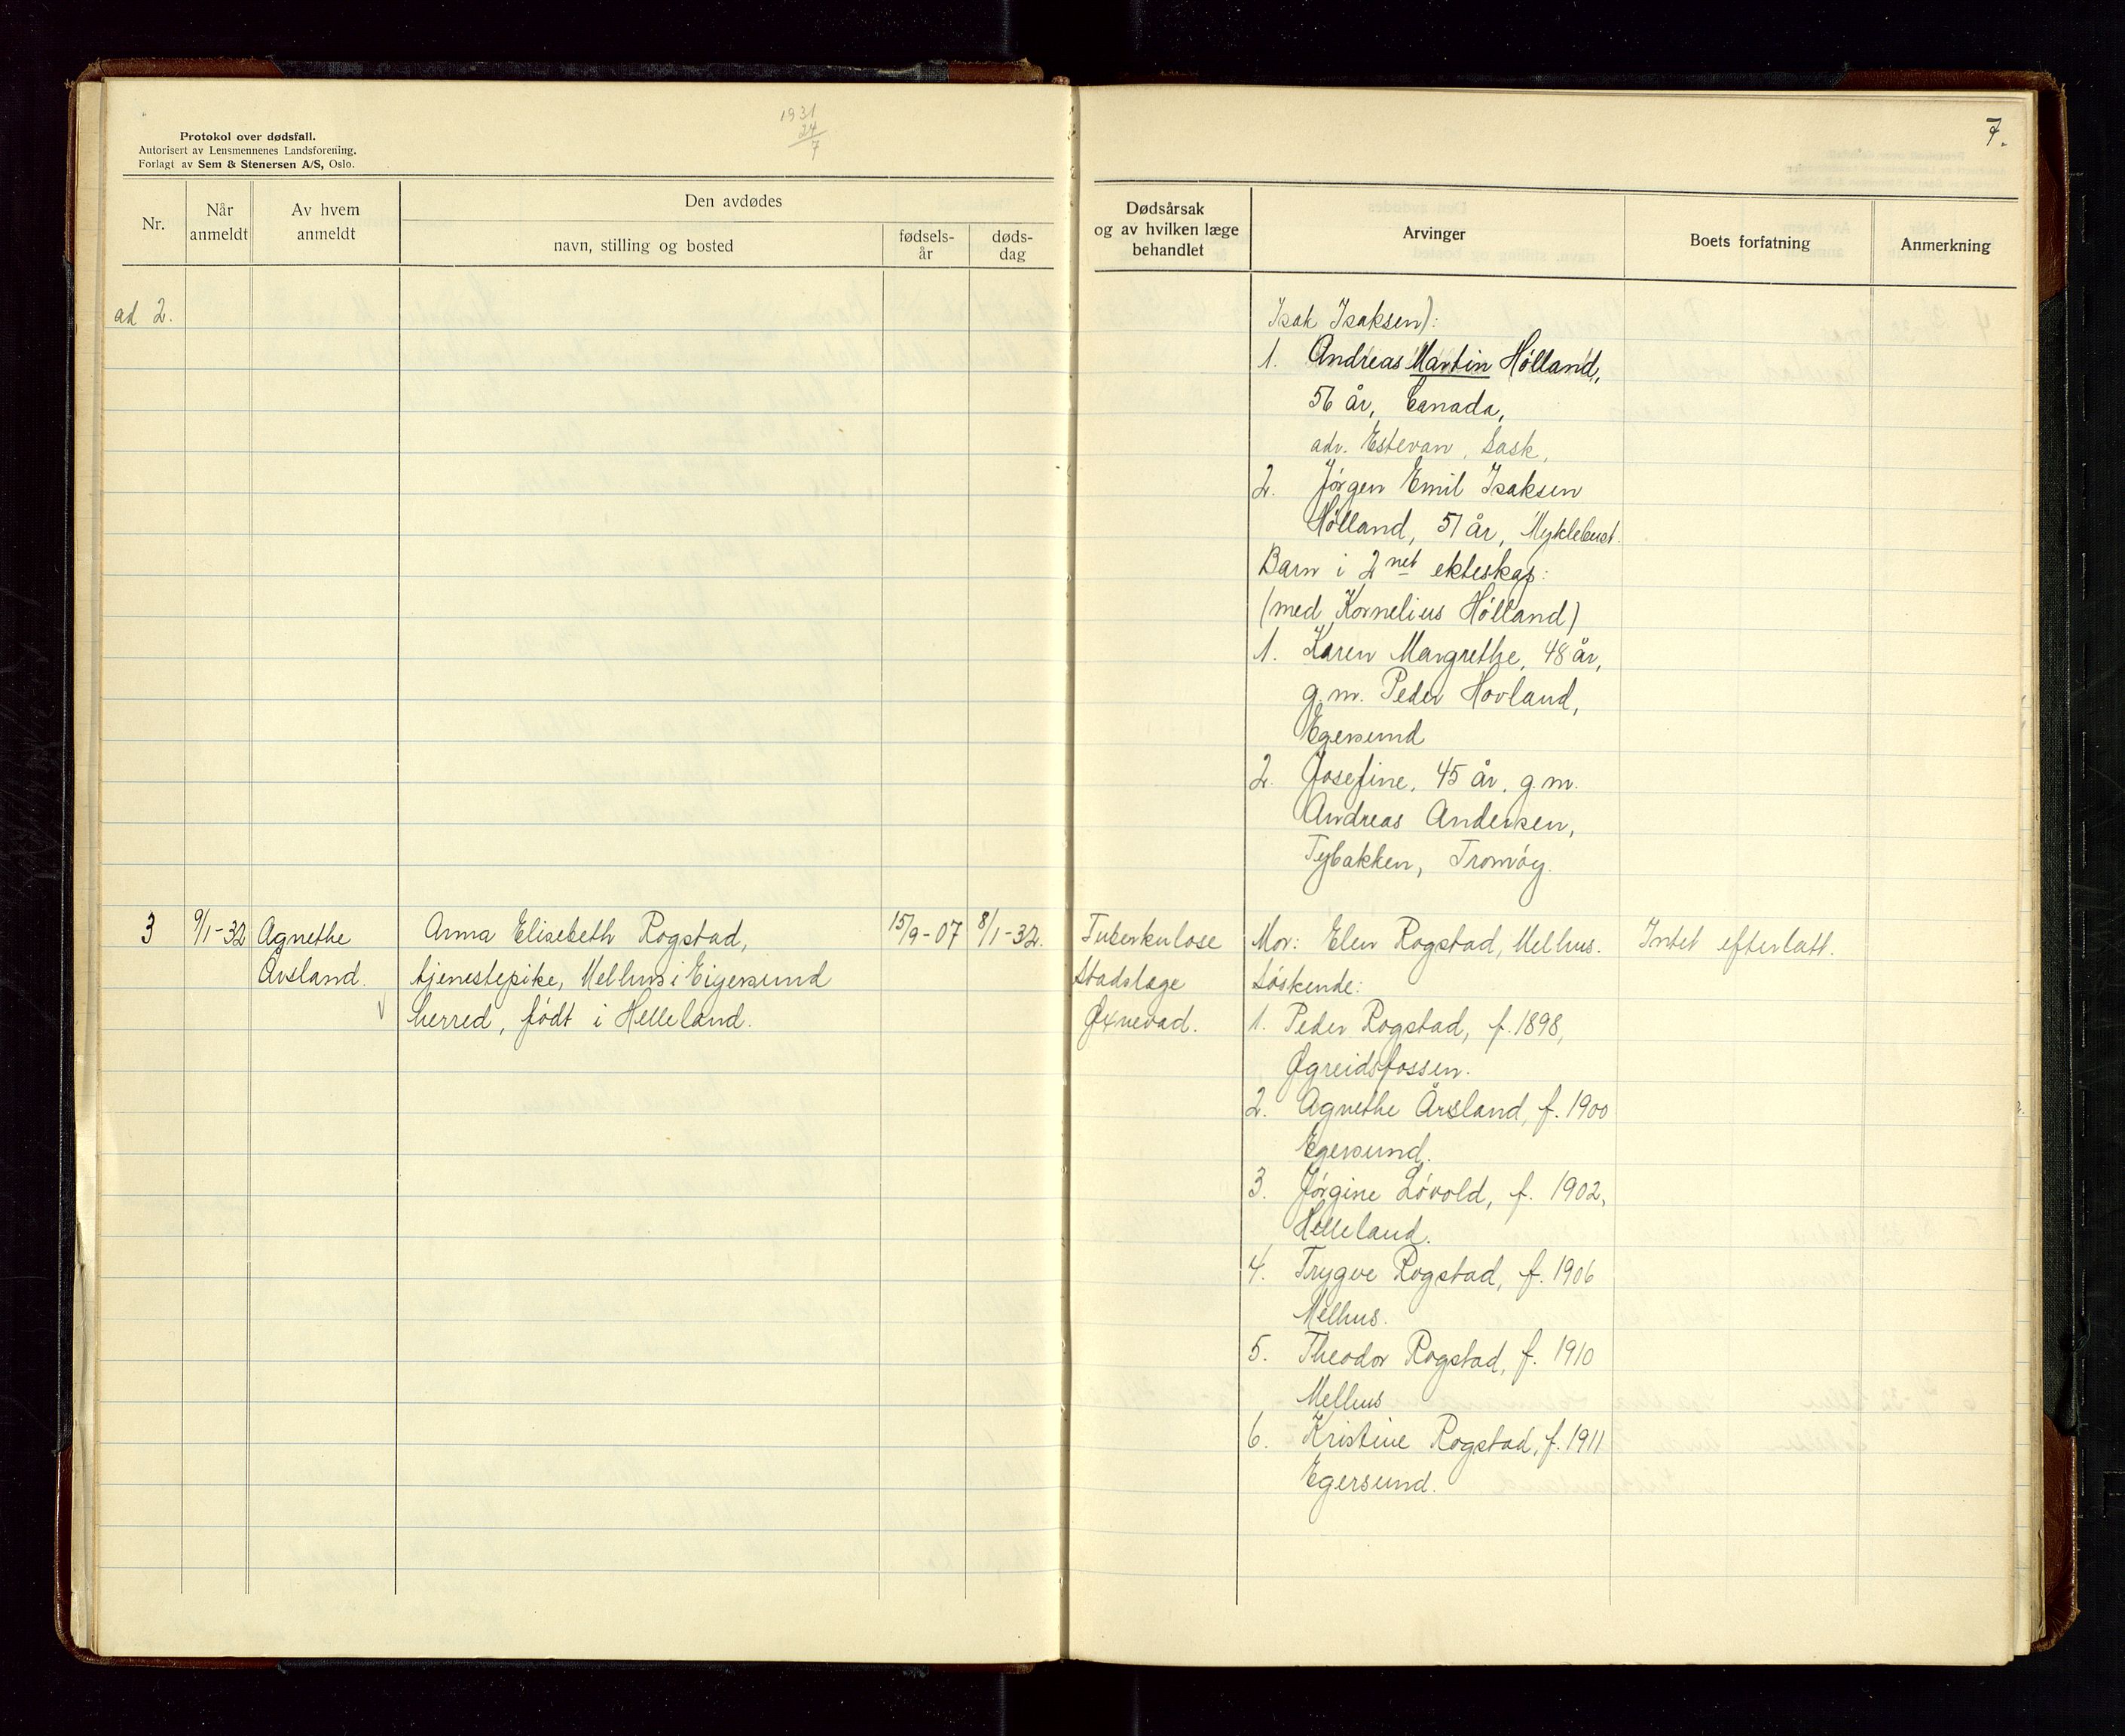 1931
24
7
7.
Protokol over dødsfall.
Autorisert av Lensmennenes Landsforening.
Forlagt av Sem & Stenersen A/S, Oslo.
Nr.
Når anmeldt
Av hvem anmeldt
Den avdødes
navn, stilling og bosted
fødsels-år
døds-dag
Dødsårsak og av hvilken læge behandlet
Arvinger
Boets forfatning
Anmerkning
ad 2.
Isak Isaksen):
1. Andreas Martin Hólland,
56 år, Canada,
adr. Estevan, Sask,
2. Jørgen Emil Isaksen
Hólland, 51 år, Myklebust.
Barn i 2net ekteskap:
(med Kornelius Hólland)
1. Karen Margrethe, 48 år,
g.m. Peder Hovland,
Egersund
2. Josefine, 45 år, g.m.
Andreas Andersen,
Tybakken, Tromóy.
3 9/1-32 Agnethe Anna Elisebeth Rogstad, 15/9-07 8/1-32. Tuberkulose Mor: Elen Rogstad, Melhus. Intet efterlatt.
Årsland. tjenestepike, Melhus i Eigersund Stadslæge Sóskende:
herred, fódt i Helleland. Øxnevad. 1. Peder Rogstad, f. 1898,
Øgreidsfossen.
2. Agnethe Årsland, f. 1900
Egersund.
3. Jórgine Lóvold, f. 1902,
Helleland.
4. Trygve Rogstad, f. 1906
Melhus.
5. Theodor Rogstad, f. 1910
Melhus
6. Kristine Rogstad, f. 1911
Egersund.